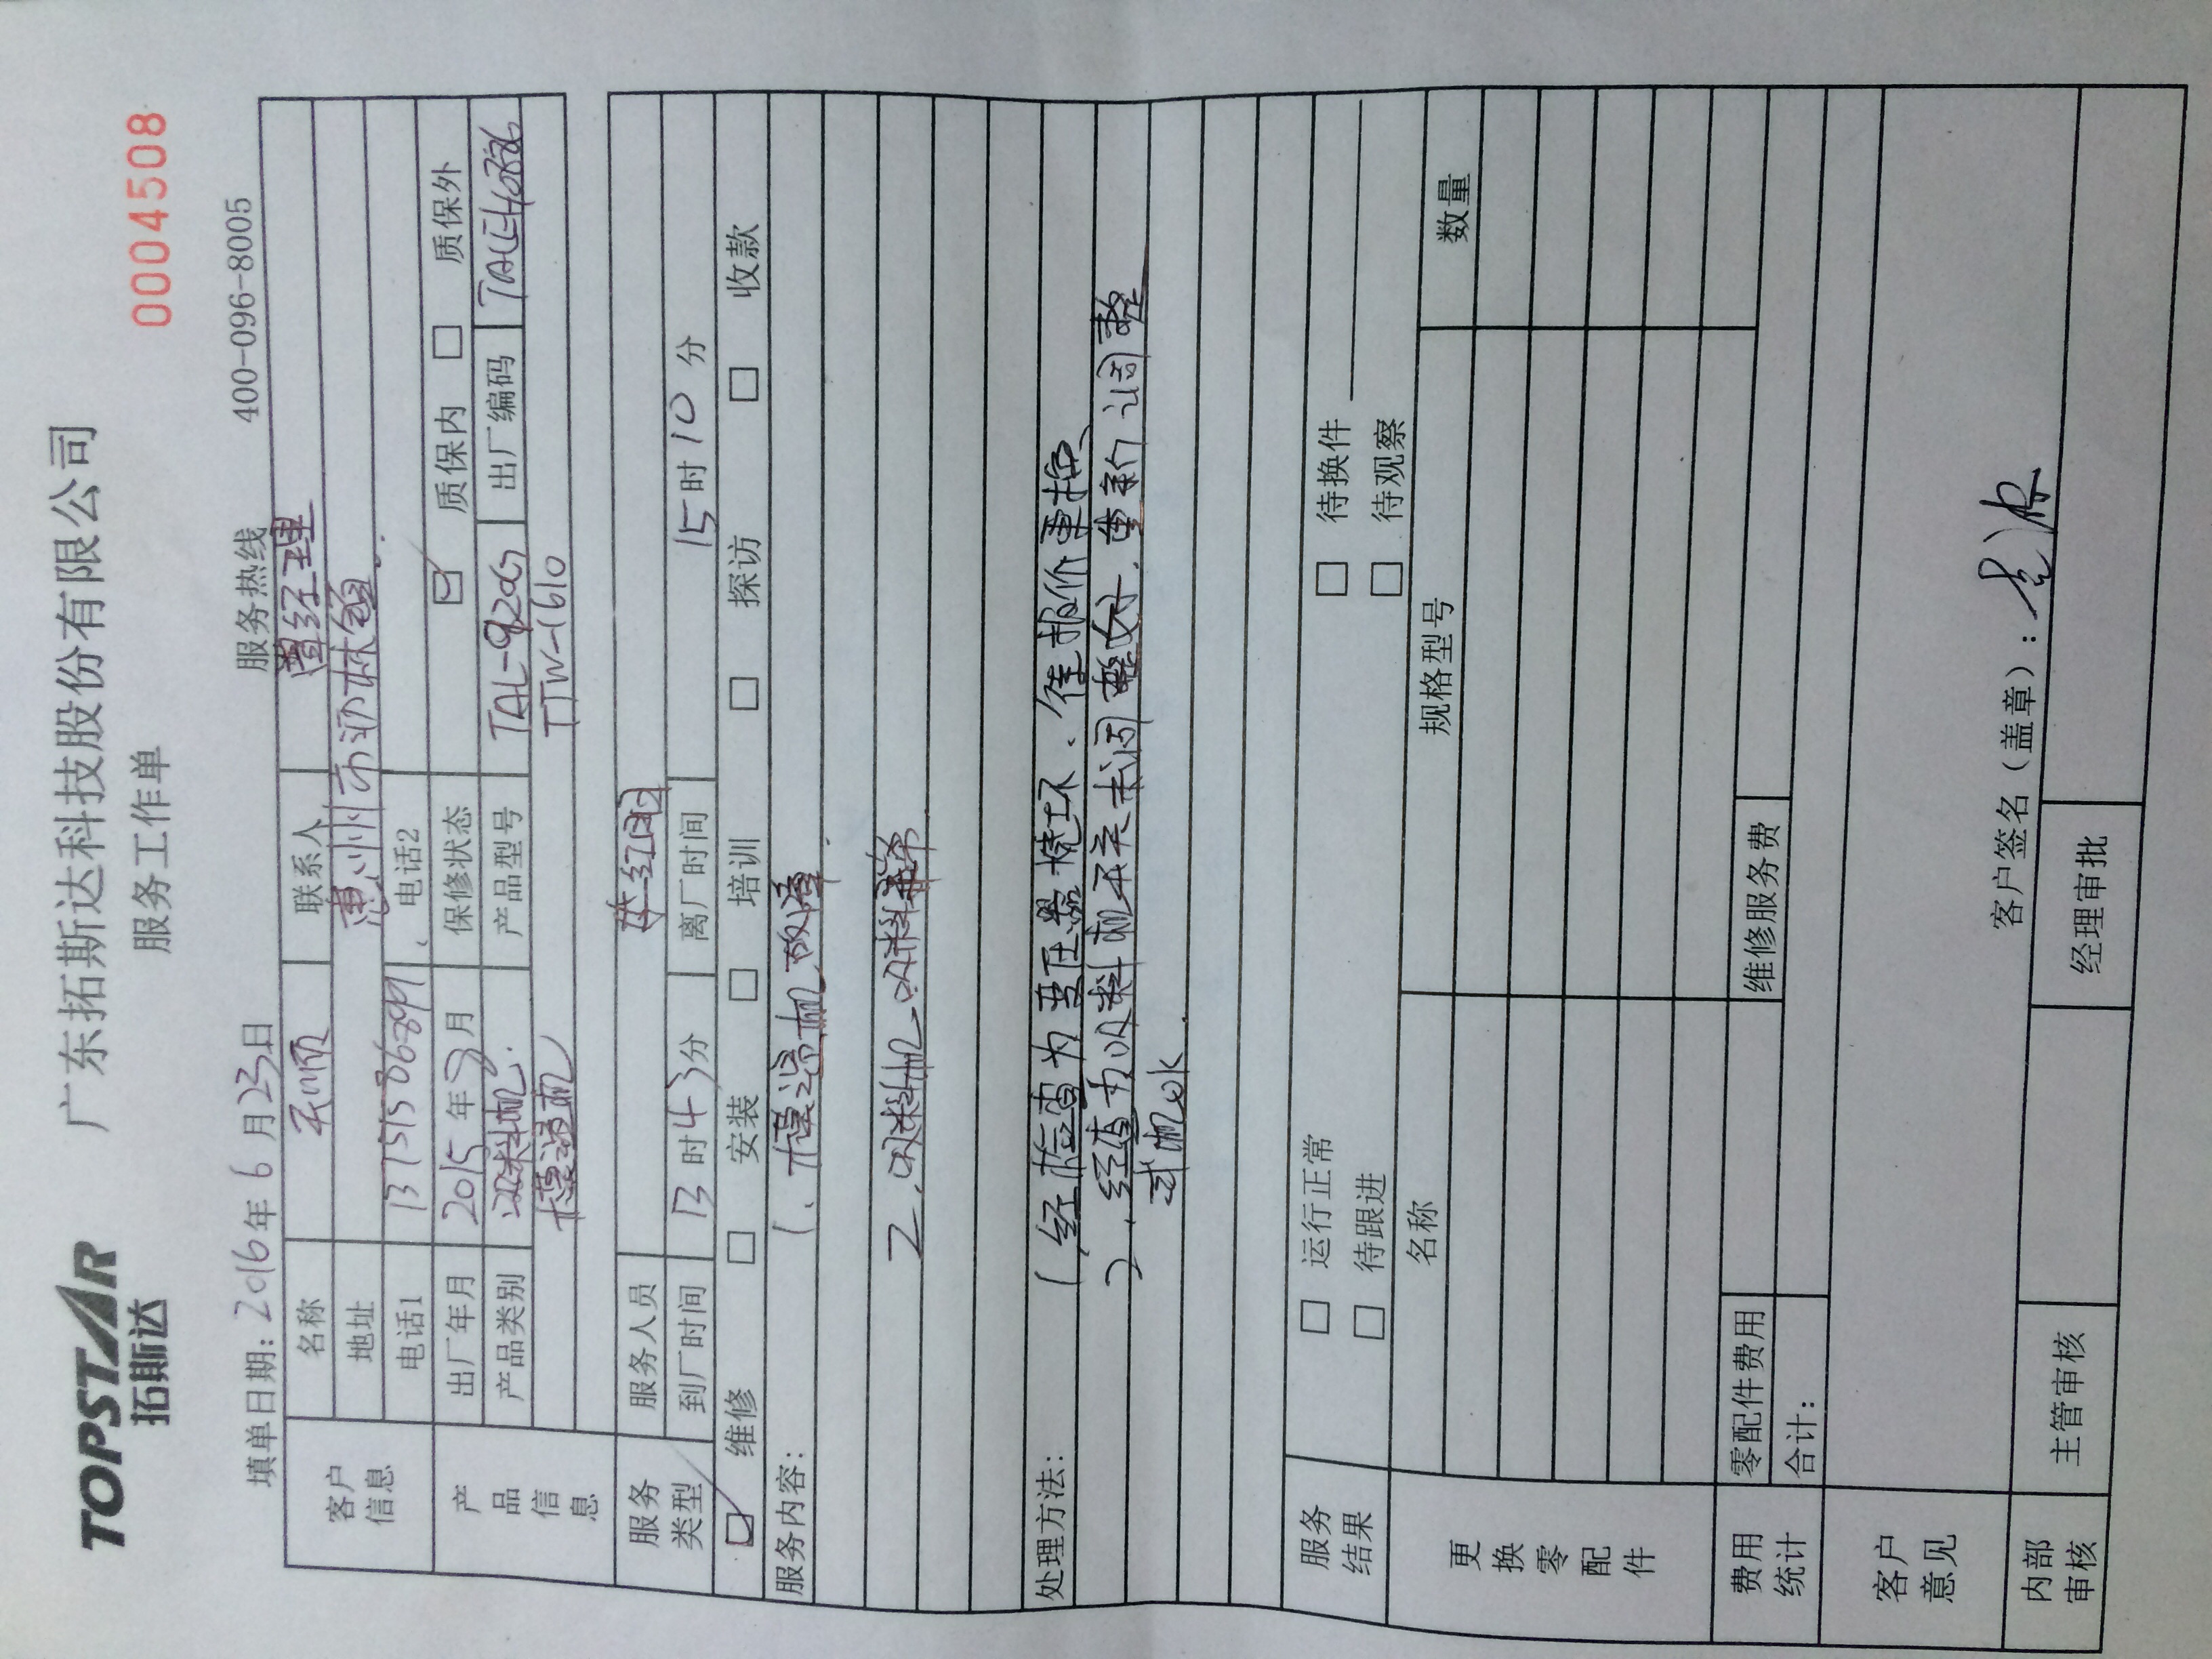 TOPSTAR
拓斯达
广东拓斯达科技股份有限公司
服务工作单
0004508
填单日期: 2016年6月23日 服务热线 400-096-8005
客户信息
名称 联系人 曾经理
地址 惠州市
电话1 电话2
产品信息
出厂年月 2015年 月 保修状态 质保内 质保外
产品类别 吸料机 产品型号 TAL-920G 出厂编码
模温机 TTW-1610
服务人员
服务类型
到厂时间 13时43分 离厂时间 15时10分
维修 安装 培训 探访 收款
服务内容: 1、模温机故障
2、吸料机吸料异常
处理方法: 1、经检查为变压器烧坏、住报价更换
2、经查为吸料机开关未调整好、重新调整
试机ok
服务结果
运行正常 待换件
待跟进 待观察
更换零配件
名称 规格型号 数量
费用统计
零配件费用 维修服务费
合计:
客户意见
客户签名（盖章）:
内部审核
主管审核 经理审批